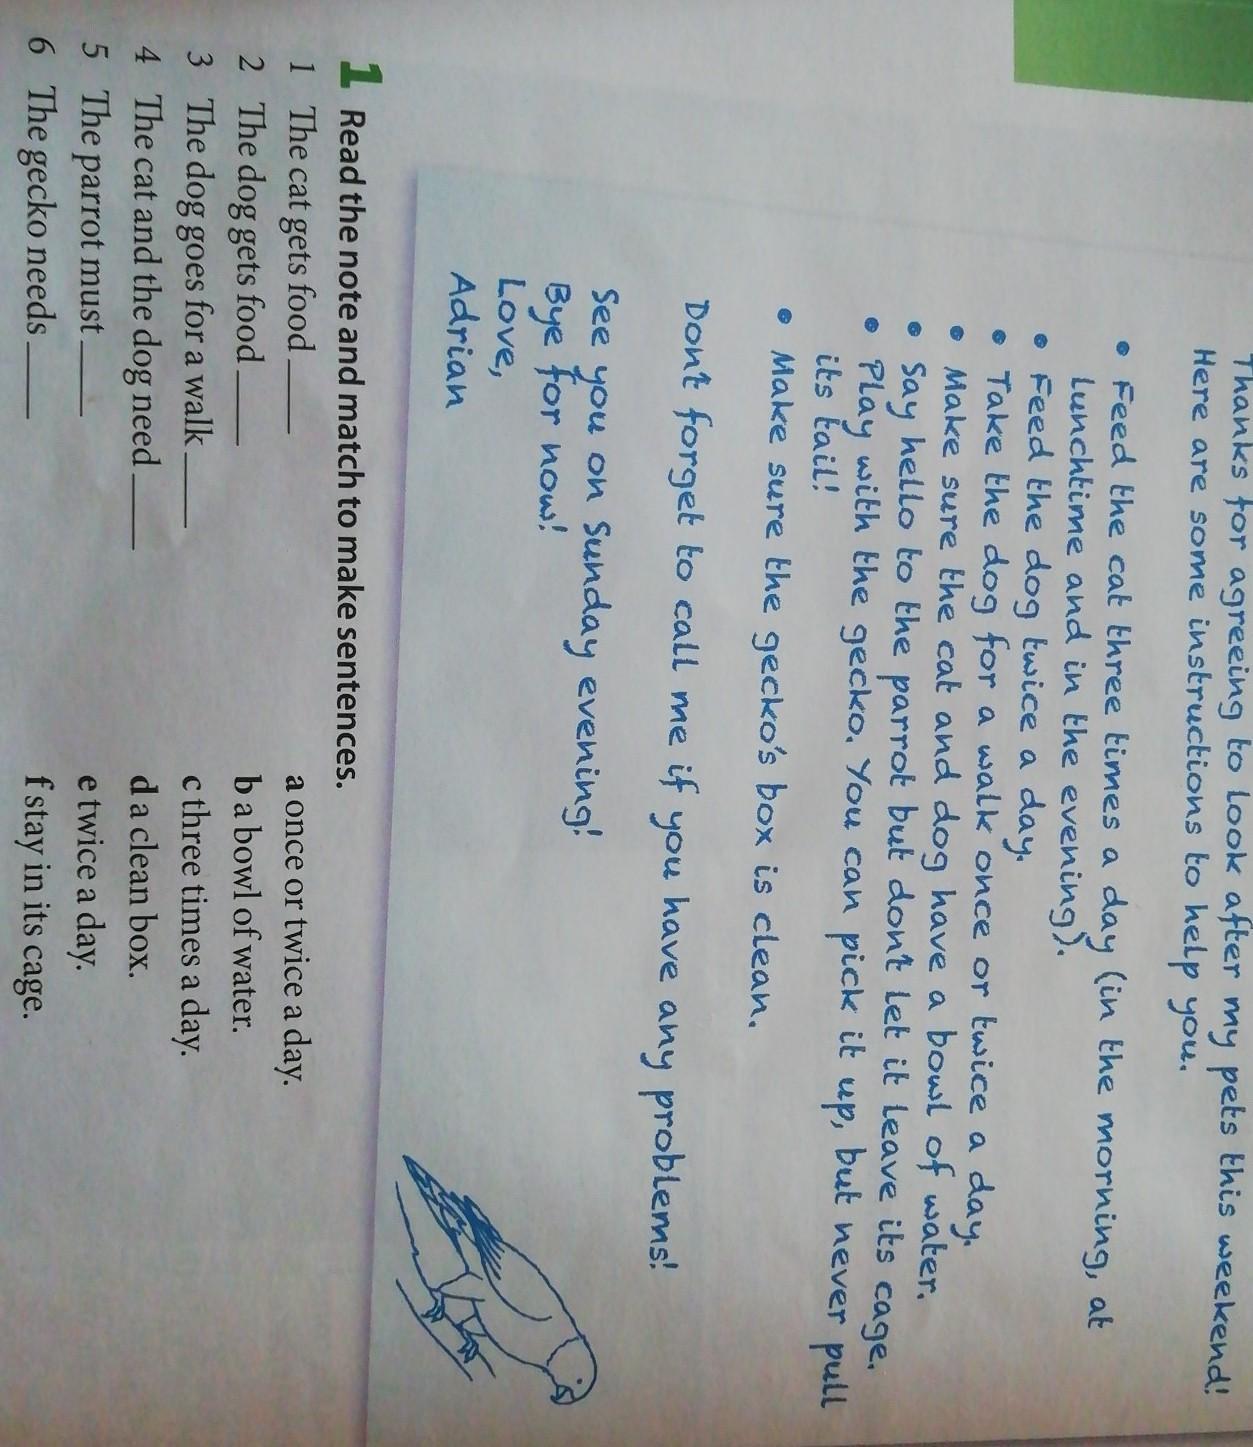 Thanks for agreeing to look after my pets this weekend!
Here are some instructions to help you.
• Feed the cat three times a day (in the morning, at
lunchtime and in the evening).
• Feed the dog twice a day.
• Take the dog for a walk once or twice a day.
• Make sure the cat and dog have a bowl of water.
• Say hello to the parrot but don't let it leave its cage.
• Play with the gecko. You can pick it up, but never pull
its tail!
• Make sure the gecko's box is clean.
Don't forget to call me if you have any problems!
See you on Sunday evening!
Bye for now!
Love,
Adrian
1 Read the note and match to make sentences.
1 The cat gets food ____ a once or twice a day.
2 The dog gets food ____ b a bowl of water.
3 The dog goes for a walk ____ c three times a day.
4 The cat and the dog need ____ d a clean box.
5 The parrot must ____ e twice a day.
6 The gecko needs ____ f stay in its cage.